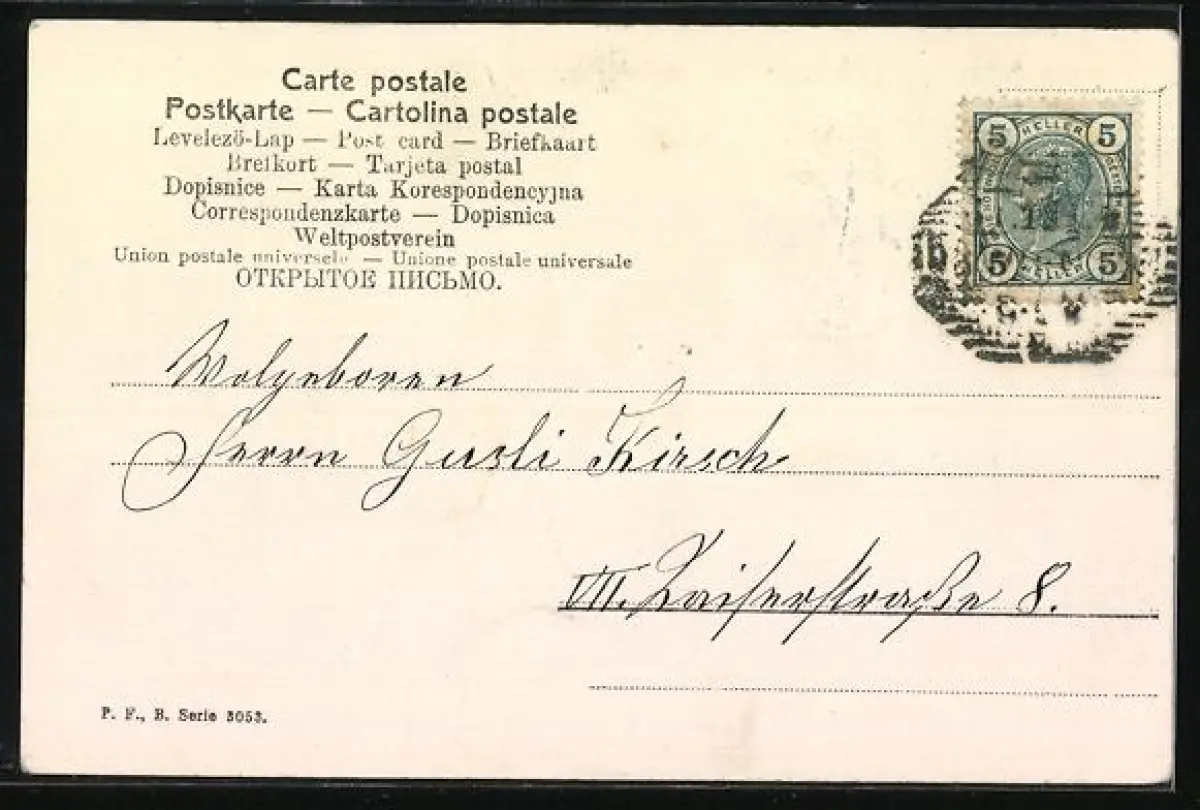 Carte postale
Postkarte — Cartolina postale
Levelező-Lap — Post card — Briefkaart
Brefkort — Tarjeta postal
Dopisnice — Karta Korespondencyjna
Correspondenzkarte — Dopisnica
Weltpostverein
Union postale universelle — Unione postale universale
ОТКРЫТОЕ ПИСЬМО.
5 HELLER 5
5 HELLER 5
Wolgeboren
Herrn Gusti Kirsch
VII. Kaiserstraße 8.
P. F., B. Serie 3053.